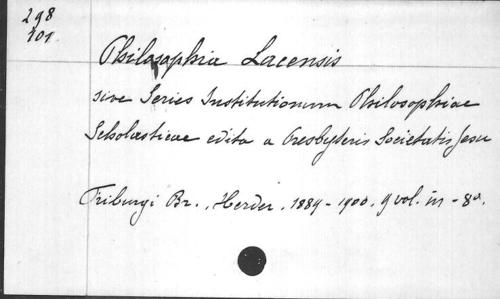 298
101
Philosophia Lacensis
sive Series Institutionum Philosophiae
Scholasticae edita a Presbyteris Societatis Jesu
Friburgi Br., Herder, 1889-1900. 9 vol. in-8º.